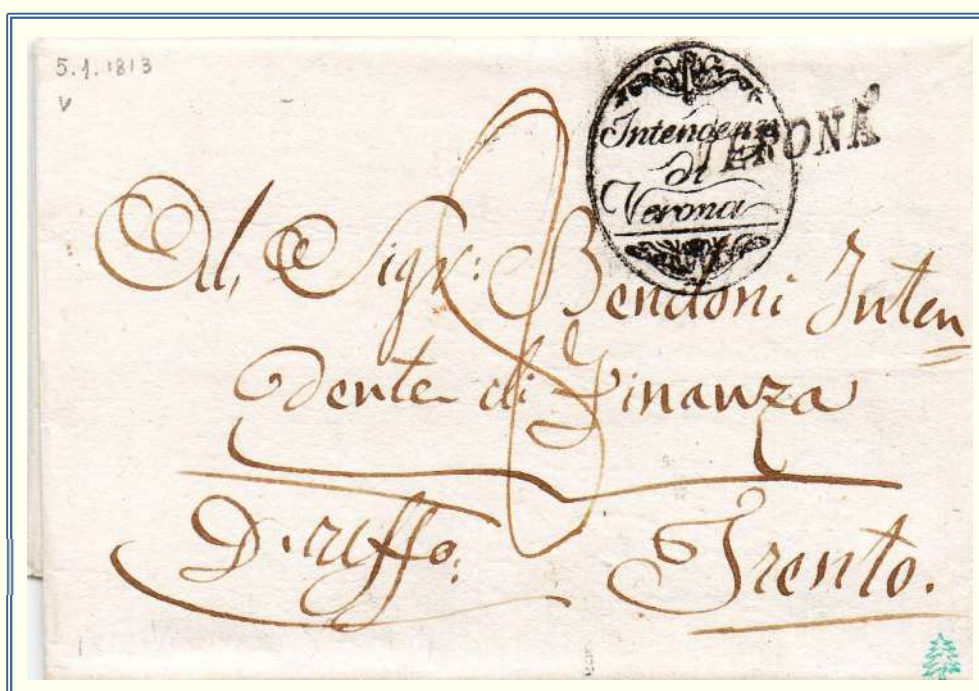 5.1.1813
V
Intendenza
di
Verona
VERONA
Al Sigr: Bendoni Inten
dente di Finanza
D'uffo: Trento.